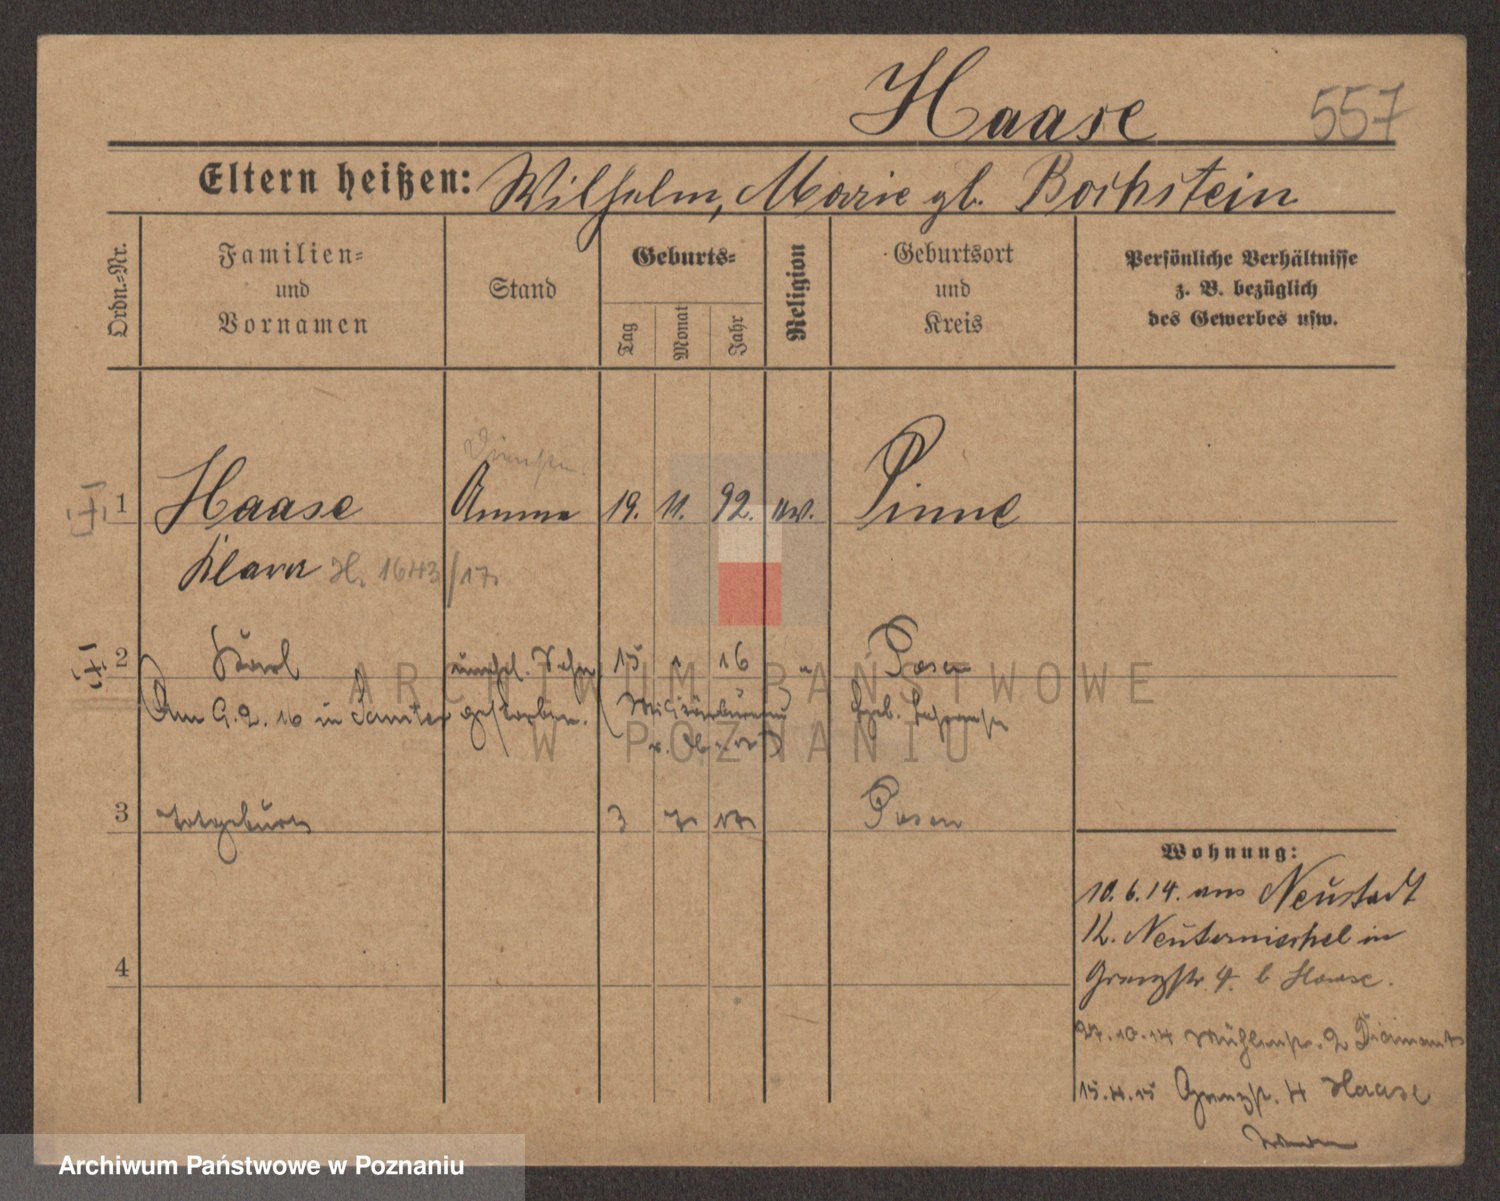 Haase 557
Eltern heißen: Wilhelm, Marie gb. Bochstein
Ordn.=Nr.
Familien=
und
Vornamen
Stand
Geburts=
Tag
Monat
Jahr
Religion
Geburtsort
und
Kreis
Persönliche Verhältnisse
z. B. bezüglich
des Gewerbes usw.
1 Haase Amme 19. 11. 92. ev. Pinne
Klara H. 1643/17.
2 Karl unehel. Sohn 15 1 16 Posen
Am 9.2.16 in Samter gestorben.
3 Totgeburt 3 7. 17. Posen
4
Wohnung:
10.6.14. aus Neustadt
K. Neutomischel in
Grenzstr. 4. b Haase.
27.10.14 Mühlenstr. 2 Diamant
15.4.15 Grenzstr. 4 Haase
ARCHIWUM PAŃSTWOWE
W POZNANIU
Archiwum Państwowe w Poznaniu